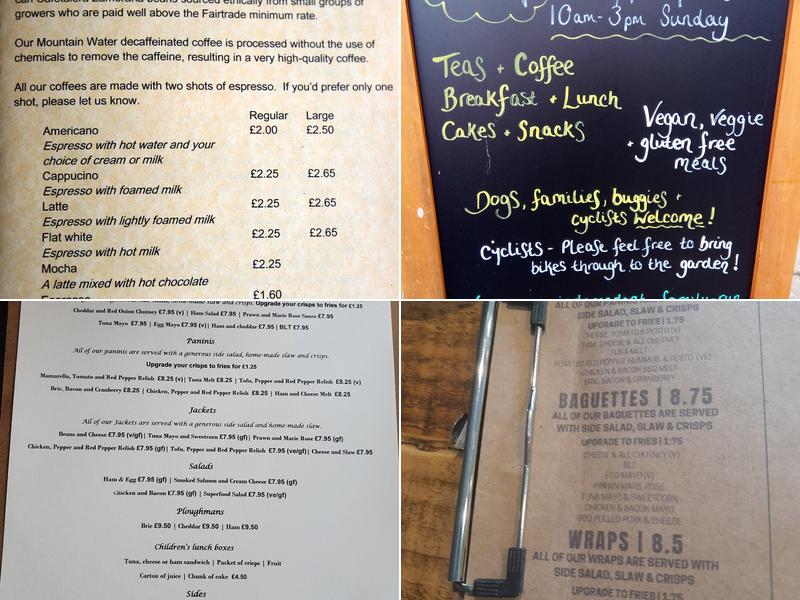 can Cafetalera Zamorana beans sourced ethically from small groups of
growers who are paid well above the Fairtrade minimum rate.
Our Mountain Water decaffeinated coffee is processed without the use of
chemicals to remove the caffeine, resulting in a very high-quality coffee.
All our coffees are made with two shots of espresso. If you'd prefer only one
shot, please let us know.
Regular Large
Americano £2.00 £2.50
Espresso with hot water and your
choice of cream or milk
Cappucino £2.25 £2.65
Espresso with foamed milk
Latte £2.25 £2.65
Espresso with lightly foamed milk
Flat white £2.25 £2.65
Espresso with hot milk
Mocha £2.25
A latte mixed with hot chocolate
Espresso £1.60
10am-3pm Sunday
Teas + Coffee
Breakfast + Lunch
Cakes + Snacks
Vegan, veggie
+ gluten free
meals
Dogs, families, buggies +
cyclists Welcome!
Cyclists - Please feel free to bring
bikes through to the garden!
home-made slaw and crisps. Upgrade your crisps to fries for £1.25
Cheddar and Red Onion Chutney £7.95 (v) | Ham Salad £7.95 | Prawn and Marie Rose Sauce £7.95
Tuna Mayo £7.95 | Egg Mayo £7.95 (v) | Ham and cheddar £7.95 | BLT £7.95
Paninis
All of our paninis are served with a generous side salad, home-made slaw and crisps.
Upgrade your crisps to fries for £1.25
Mozzarella, Tomato and Red Pepper Relish £8.25 (v) | Tuna Melt £8.25 | Tofu, Pepper and Red Pepper Relish £8.25 (v)
Brie, Bacon and Cranberry £8.25 | Chicken, Pepper and Red Pepper Relish £8.25 | Ham and Cheese Melt £8.25
Jackets
All of our Jackets are served with a generous side salad and home-made slaw.
Beans and Cheese £7.95 (v/gf) | Tuna Mayo and Sweetcorn £7.95 (gf) | Prawn and Marie Rose £7.95 (gf)
Chicken, Pepper and Red Pepper Relish £7.95 (gf) | Tofu, Pepper and Red Pepper Relish £7.95 (ve/gf) | Cheese and Slaw £7.95
Salads
Ham & Egg £7.95 (gf) | Smoked Salmon and Cream Cheese £7.95 (gf)
Chicken and Bacon £7.95 (gf) | Superfood Salad £7.95 (ve/gf)
Ploughmans
Brie £9.50 | Cheddar £9.50 | Ham £9.50
Children's lunch boxes
Tuna, cheese or ham sandwich | Packet of crisps | Fruit
Carton of juice | Chunk of cake £4.50
Sides
SIDE SALAD, SLAW & CRISPS
UPGRADE TO FRIES | 1.75
CHEESE, TOMATO & PESTO (V)
HAM, CHEESE & ALE CHUTNEY
TUNA MELT
ROASTED RED PEPPER, HUMMUS & PESTO (VE)
CHICKEN & BACON BBQ MELT
BRIE, BACON & CRANBERRY
BAGUETTES | 8.75
ALL OF OUR BAGUETTES ARE SERVED
WITH SIDE SALAD, SLAW & CRISPS
UPGRADE TO FRIES | 1.75
CHEESE & ALE CHUTNEY (V)
BLT
EGG MAYO (V)
PRAWN MARIE ROSE
TUNA MAYO & SWEETCORN
CHICKEN & BACON MAYO
BBQ PULLED PORK & CHEESE
WRAPS | 8.5
ALL OF OUR WRAPS ARE SERVED WITH
SIDE SALAD, SLAW & CRISPS
UPGRADE TO FRIES | 1.75